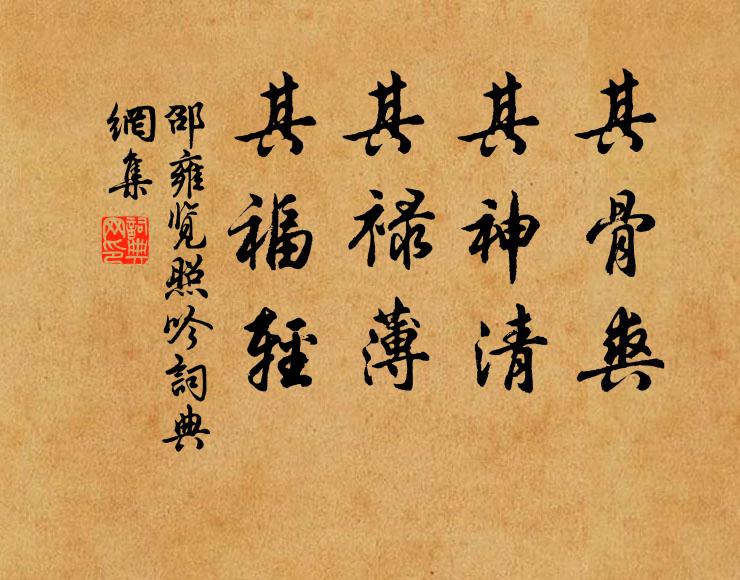 其骨爽
其神清
其禄薄
其福輕
邵雍覽照吟詞典
網集
詞典
网印